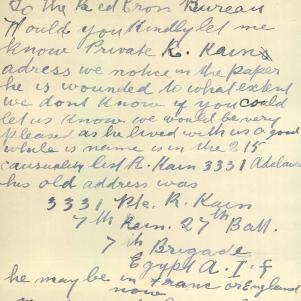 To the Red Cross Bureau
Would you kindly let me
know Private R. Kain
adress we notice in the paper
he is wounded to what extent
we dont know if you could
let us know we would be very
pleased as he lived with us a good
while is name is in the 215
causuality list R. Kain 3331 Adelaide
his old address was
3331 Pte. R. Kain
7th Rein. 27th Batt.
7th Brigade
Egypt A. I. F
he may be in Franc or England
now